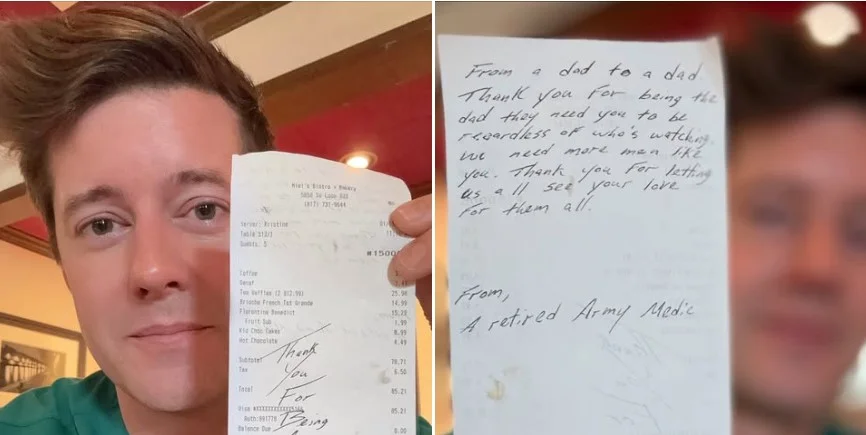 Mimi's Bistro + Bakery
(417) 731-9644
Server: Kristine
Table 310/1
Guests: 5
#1500
Coffee
Decaf
Two Waffles (2 @12.99) 25.98
Brioche French Tst Grande 14.99
Florentine Benedict
Fruit Sub 1.99
Kid Choc Cakes 6.99
Hot Chocolate 4.49
Subtotal 78.71
Tax 6.50
Total 85.21
Visa 85.21
Balance Due 0.00
Thank
You
For
Being
From a dad to a dad.
Thank you for being the
dad they need you to be
regardless of who's watching.
We need more men like
you. Thank you for letting
us all see your love
for them all.
From,
A retired Army Medic